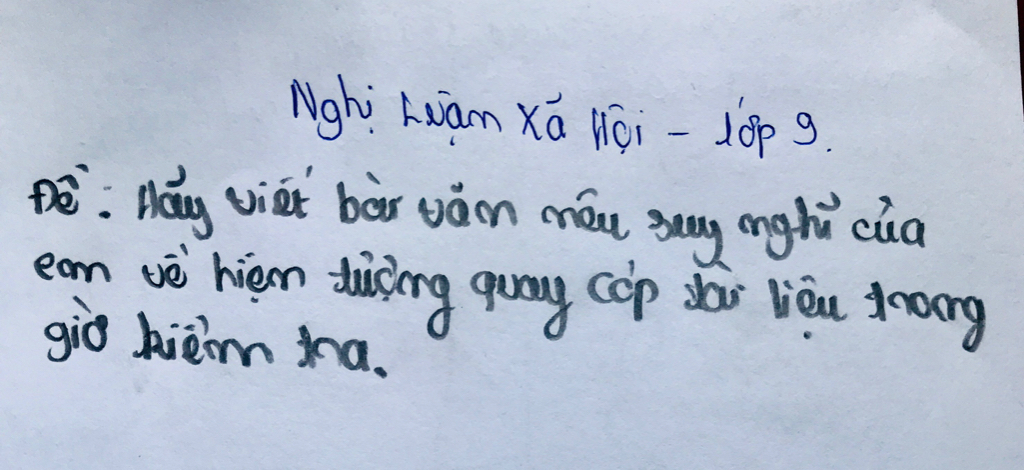 Nghị Luận Xã Hội - lớp 9.
Đề: Hãy viết bài văn nêu suy nghĩ của
em về hiện tượng quay cóp tài liệu trong
giờ kiểm tra.